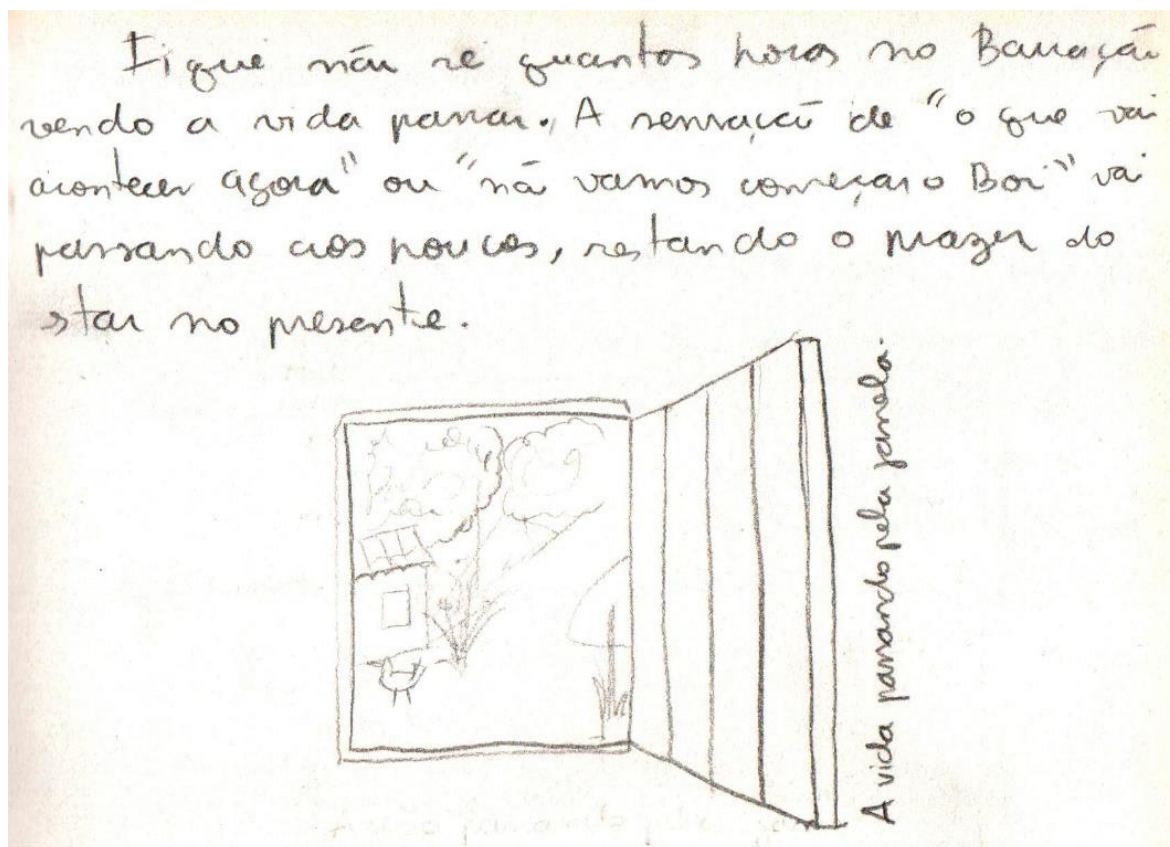 Fiquei não sei quantas horas no Barracão
vendo a vida passar. A sensação de "o que vai
acontecer agora" ou "não vamos começar o Boi" vai
passando aos poucos, restando o prazer do
estar no presente.
A vida passando pela janela.